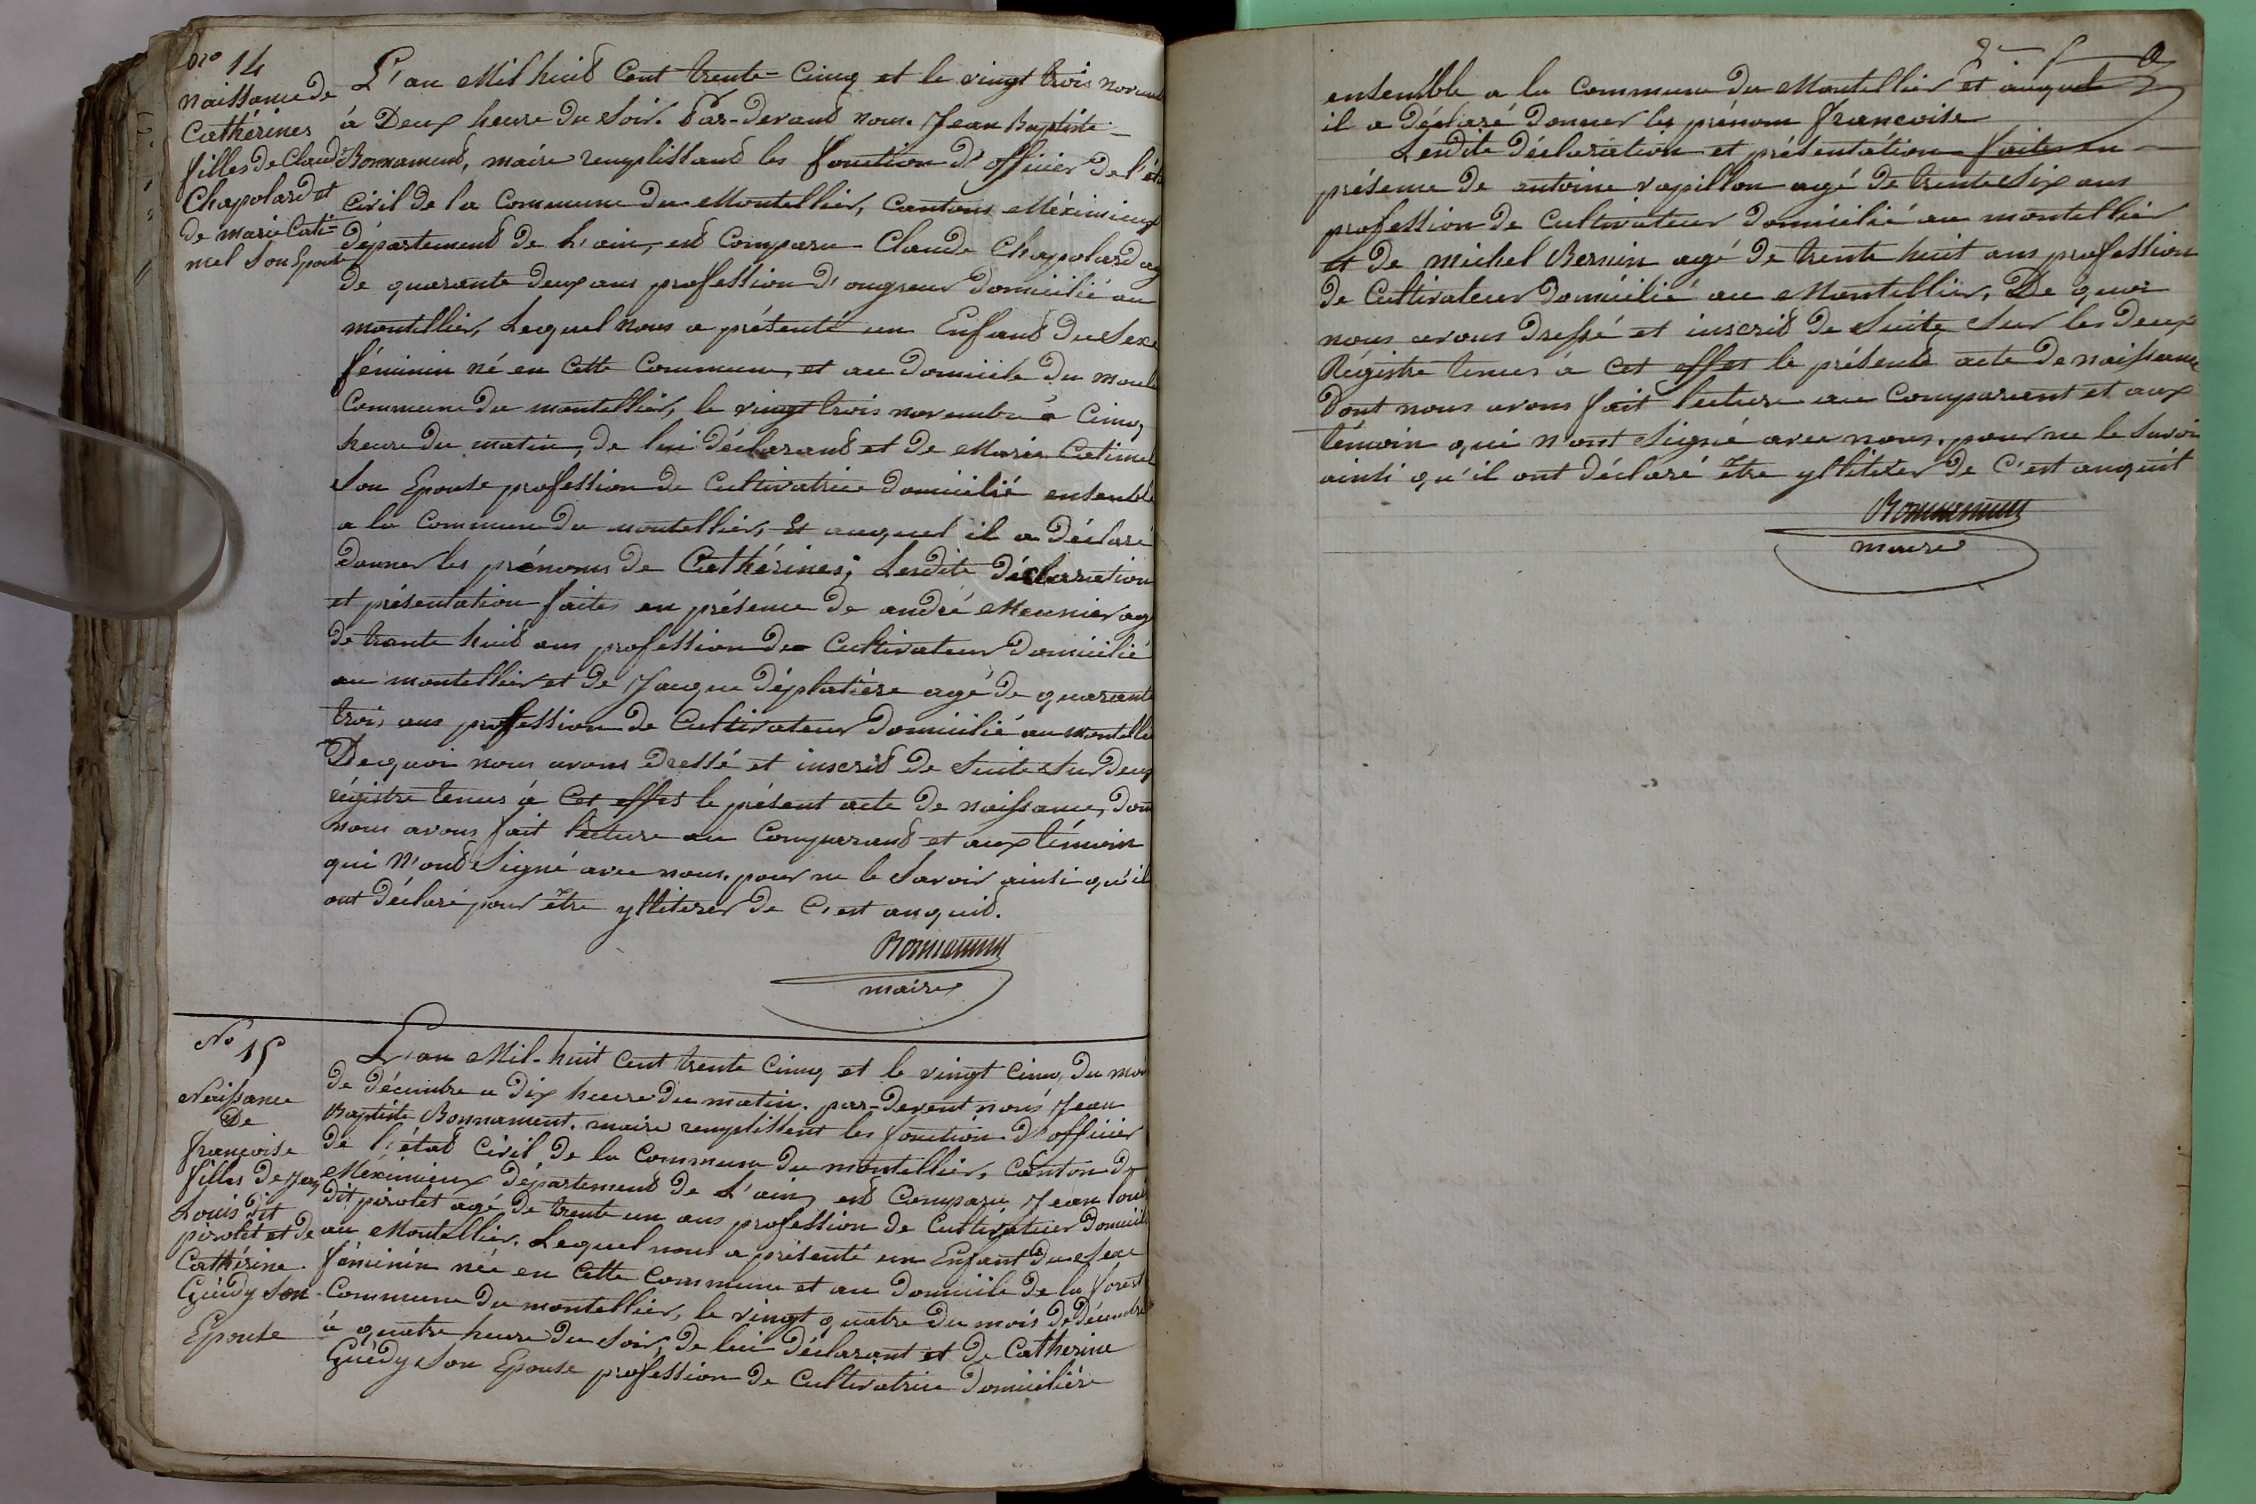 no 14
naissance de
Cathérines
filles de Claude
Chapolard et
de marie Cati=
mel son Epouse
L'an Mil huid Cent trente=Cinq et le vingt trois novemb
à Deux heure du Soir. Par-devand nous. Jean Baptiste
Bonnamend, maire remplissand les fonction d'officier de l'éta
Civil de la Commune du Montellier, Cantons Méximieux
département de L'ain, est Comparu Claude Chapolard ag
de quarante deux ans profession d'ongreur domicilié au
montellier, Lequel nous a présenté un Enfand du Sexe
féminin né en Cette Commune, et au domicile du
Commune du montellier, le vingt trois novembre à Cinq
heure du matin, de lui déclarand et de Marie Catimel
Son Epouse profession de Cultivatrice domicilié ensemble
a la Commune du montellier, Et auquel il a déclaré
donner les prénoms de Cathérines; Lesdite déclaration
et présentation faites en présence de andré Meunier ag
de trante huid ans profession de Cultivateur domicilié
au montellier et de Jaque déplatière agé de quarante
trois ans profession de Cultivateur domicilié au montellie
De quoi nous avons dressé et inscrid de Suite Sur deux
régistre tenus à Cet effet le présent acte de naissance, don
nous avons fait lecture au Comparand et aux témoin
qui n'ond Signé avec nous. pour ne le Savoir ainsi qu'il
ont déclaré pour être ylliterer de C'est anquid.
Bonnamend
maire
No 15
Naissance
De
françoise
filles de Jean
Louis dit
pirolet et de
Cathérine
Guédy Son
Epouse
L'an Mil-huit Cent trente Cinq et le vingt Cinq du moi
de décembre a dix heure du matin. par-devent nous Jean
Baptiste Bonnament. maire remplissent les fonction d'officier
de l'étad Civil de la Commune du montellier, Canton de
Méximieux département de L'ain, est Comparu Jean louis
dit pirolet agé de trente un ans profession de Cultivateur domicili
au Montellier. Lequel nous a présenté un Enfant du Sexe
féminin née en Cette Commune et au domicile de la forest
Commune du montellier, le vingt quatre du mois de décembre
à quatre heure du Soir, de lui déclarant et de Catherine
Guédy Son Epouse profession de Cultivatrice domicilière
ensemble a la Commune du Montellier et auquel
il a déclaré donner les prénom francoise
Lesdite déclaration et présentation faites en
présence de antoine vapillon agé de trente Six ans
profession de Cultivateur domicilié au montellier
et de michel Bernin agé de trente huit ans profession
de Cultivateur domicilié au Montellier. De quoi
nous avons dressé et inscrid de Suite Sur les deux
Régistre tenus à Cet effet le présend acte de naissance
dont nous avons fait lecture au Comparent et aux
témoin qui n'ont Signé avec nous. pour ne le Savoir
ainsi qu'il ont déclaré être ylliterer de C'est anquit
Bonnamend
maire